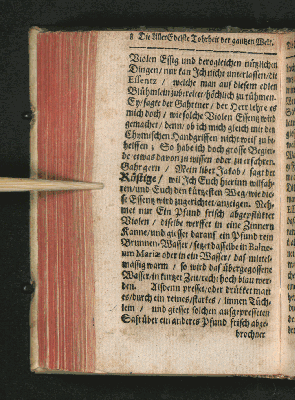 8 Die AllerEdelste Tohrheit der gantzen Welt.
Violen Essig und dergoleichen nützlichen
Dingen / nur kan Ich nicht unterlassen / die
Essentz / welche man auf diesem edlen
Blühmlein zubereitet / höchlich zu rühmen.
Ey / sagte der Gahrtner / der Herr lehre es
mich doch / wie solche Violen Essentz wird
gemachet / denn / ob ich mich gleich mit den
Chymischen Handgriffen nicht weiß zu be-
helffen ; So habe ich doch grosse Begier-
de etwas davon zu wissen oder zu erfahren.
Gahr gern / Mein lieber Jakob / sagt der
Rüstige / wil Ich Euch hierinn wilfah-
ren / und Euch den kürzesten Weg / wie die-
se Essentz wird zugerichtet / anzeigen. Neh-
met nur Ein Pfund frisch abgepflükter
Violen / dieselbe werffet in eine Zinnern
Kanne / und giesset darauf ein Pfund rein
Brunnen-Wasser / setzet dasselbe in Balne-
um Mariæ oder in ein Wasser / das mittel-
mässig warm / so wird das übergegossene
Wasser / in kurzer Zeit / recht hoch blau wer-
den. Alsdenn presset / oder drükket man
es / durch ein reines / starkes / linnen Tüch-
lein / und giesset solchen ausgepresseten
Saft über ein anderes Pfund frisch abge-
brochner